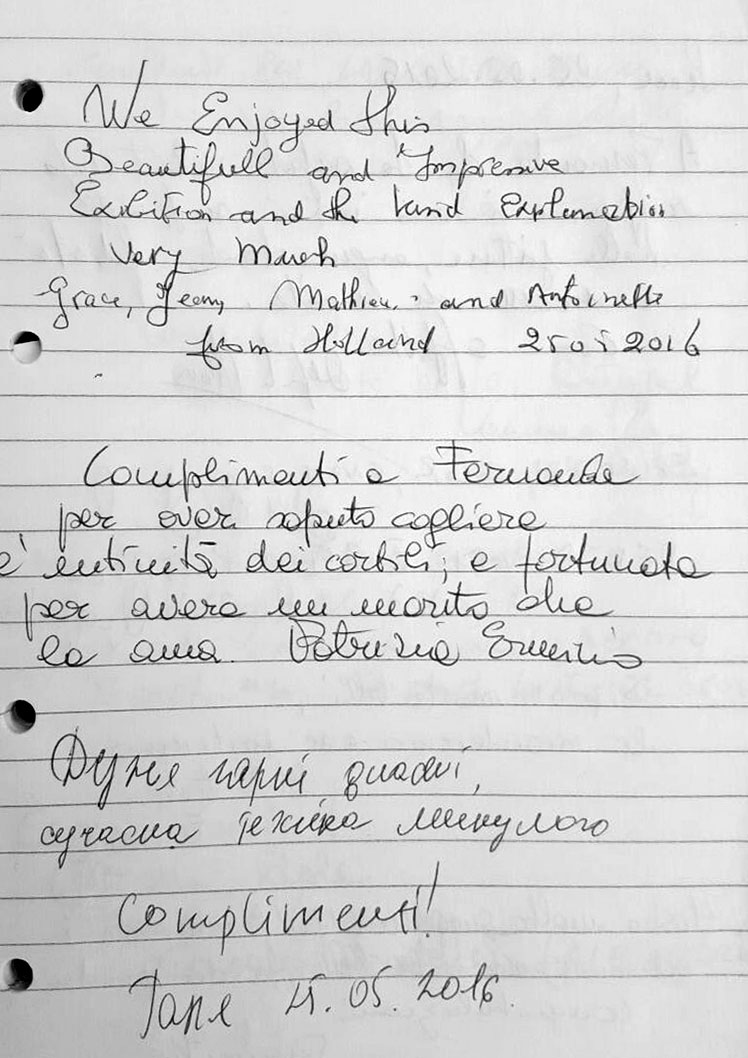 We Enjoyed this
Beautifull and Impresive
Exibition and the kind Explanation
very much
Grace, Jeany, Mathieu. and Antoinette
from Holland 25 05 2016
Complimenti a Fernanda
per aver saputo cogliere
l'intimità dei cortili; e fortunata
per avere un marito che
la ama. Patrizia Erminio
Дуже гарні quadri,
сучасна техніка минулого
Complimenti!
Таня 25.05.2016.